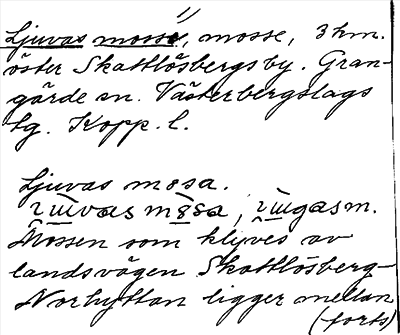 Ljuvas mosse, mosse, 3 km.
öster Skattlösbergs by. Gran-
gärde sn. Västerbergslags
tg. Kopp. l.
Ljuvas mosa.
Mossen som klyves av
landsvägen Skattlösberg-
Norhyttan ligger mellan
(forts)